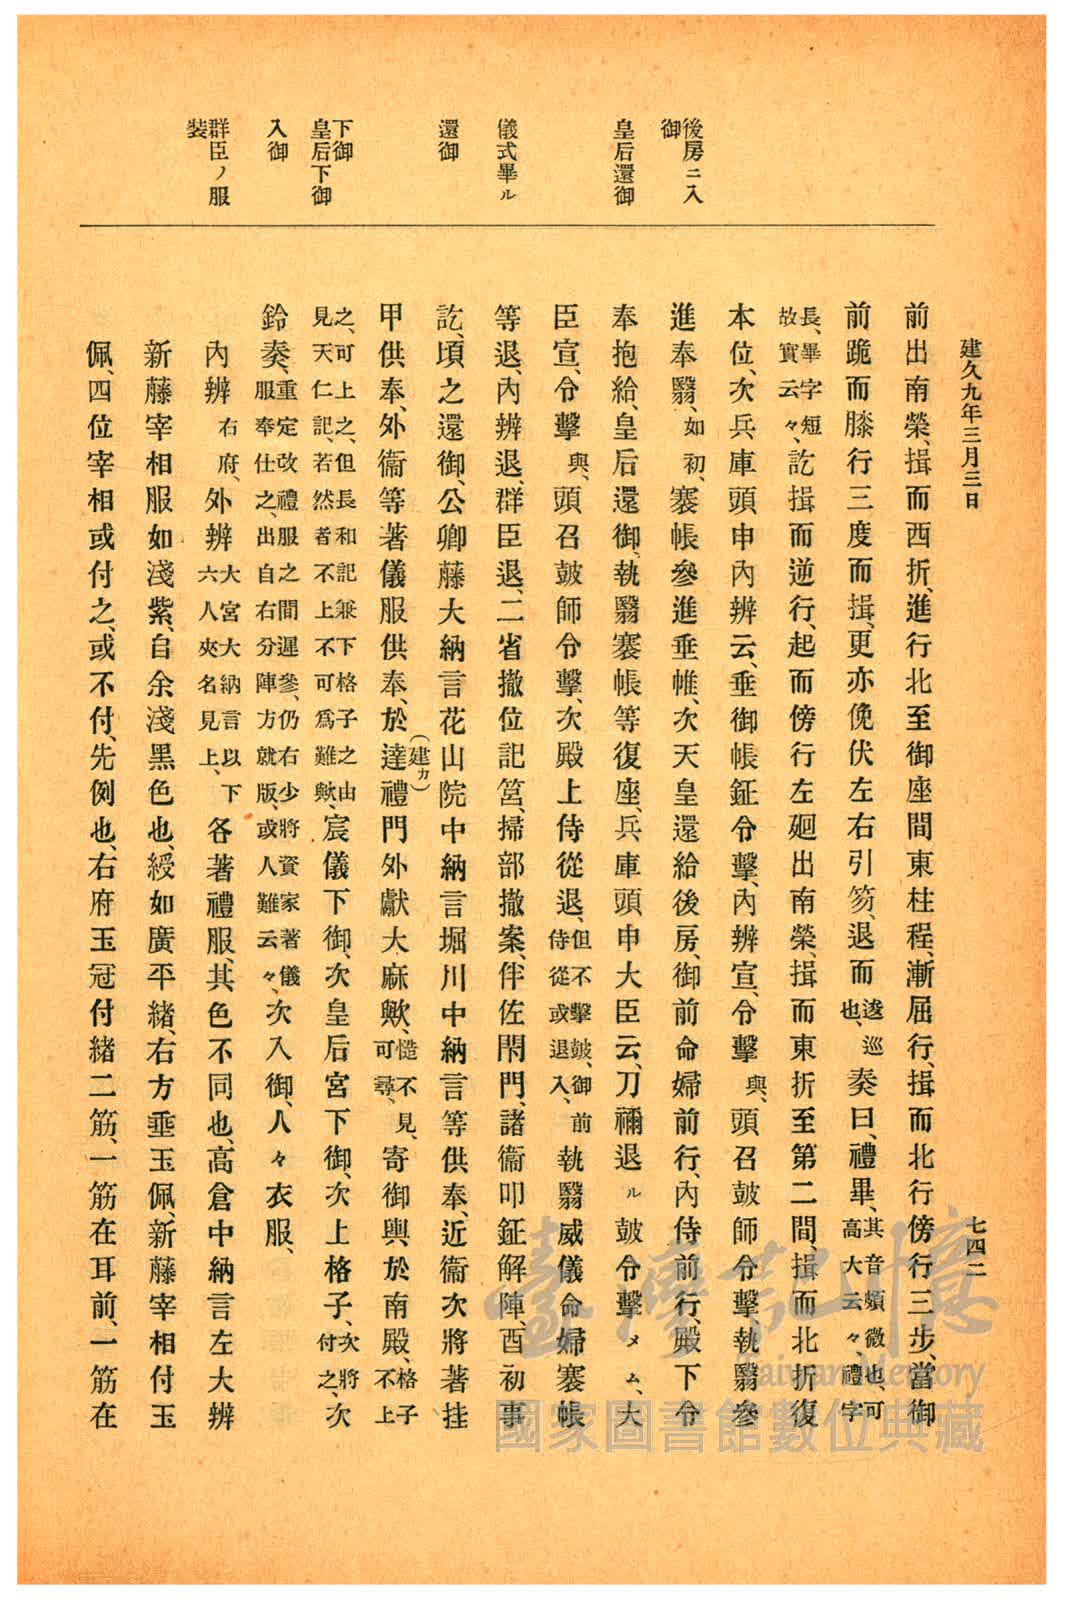 建久九年三月三日
七四二
後房ニ入
御
皇后還御
儀式畢ル
還御
下御
皇后下御
入御
群臣ノ服
裝
前出南榮、揖而西折、進行北至御座間東柱程、漸屈行、揖而北行傍行三步、當御
前跪而膝行三度而揖、更亦俛伏左右引笏、退而逡巡也、奏曰、禮畢、其音頗微也、可高大云々、禮字
長、畢字短故實云々、訖揖而逆行、起而傍行左廻出南榮、揖而東折至第二間、揖而北折復
本位、次兵庫頭申內辨云、垂御帳鉦令擊、內辨宣、令擊與、頭召皷師令擊、執翳參
進奉翳、如初、褰帳參進垂帷、次天皇還給後房、御前命婦前行、內侍前行、殿下令
奉抱給、皇后還御、執翳褰帳等復座、兵庫頭申大臣云、刀禰退ル皷令擊メム、大
臣宣、令擊與、頭召皷師令擊、次殿上侍從退、但不擊皷、御前侍從或退入、執翳威儀命婦褰帳
等退、內辨退、群臣退、二省撤位記筥、掃部撤案、伴佐閇門、諸衞叩鉦解陣、酉初事
訖、頃之還御、公卿藤大納言花山院中納言堀川中納言等供奉、近衞次將著挂
甲供奉、外衞等著儀服供奉、於達(建カ)禮門外獻大麻歟、慥不見、可尋、寄御輿、於南殿、格子不上
之、可上之、但長和記兼下格子之由見天仁記、若然者不上不可爲難歟、宸儀下御、次皇后宮下御、次上格子、次將付之、次
鈴奏、重定改禮服之間遲參、仍右少將資家著儀服奉仕之、出自右分陣方就版、或人難云々、次入御、人々衣服、
內辨右府、外辨大宮大納言以下六人夾名見上、各著禮服、其色不同也、高倉中納言左大辨
新藤宰相服如淺紫、自余淺黑色也、綬如廣平緒、右方垂玉佩、新藤宰相付玉
佩、四位宰相或付之、或不付、先例也、右府玉冠付緒二筋、一筋在耳前、一筋在
臺灣記憶
Taiwan Memory
國家圖書館數位典藏